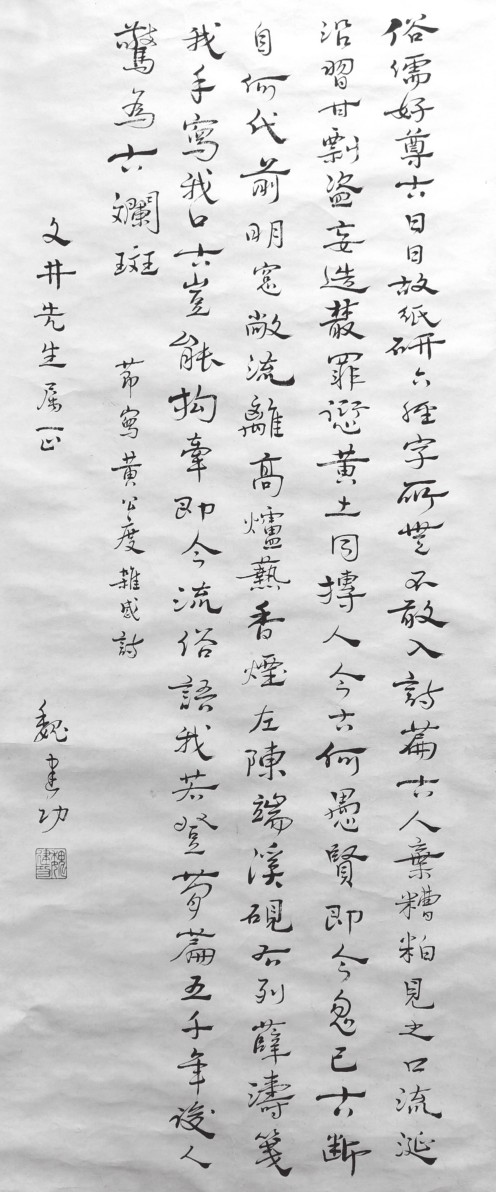 俗儒好尊古日日故紙研六經字所無不敢入詩篇古人棄糟粕見之口流涎
沿習甘剽盜妄造叢罪愆黃土同摶人今古何愚賢即今忽已古斷
自何代前明窗敞流離高爐爇香煙左陳端溪硯右列薛濤箋
我手寫我口古豈能拘牽即今流俗語我若登簡篇五千年後人
驚為古斕斑
節寫黃公度雜感詩
文井先生屬正
魏建功